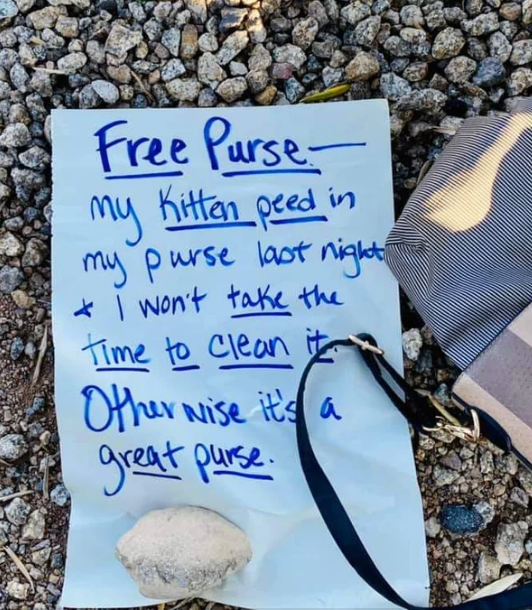 Free Purse.—
my kitten peed in
my purse last night
& I won't take the
time to clean it.
Otherwise it's a
great purse.